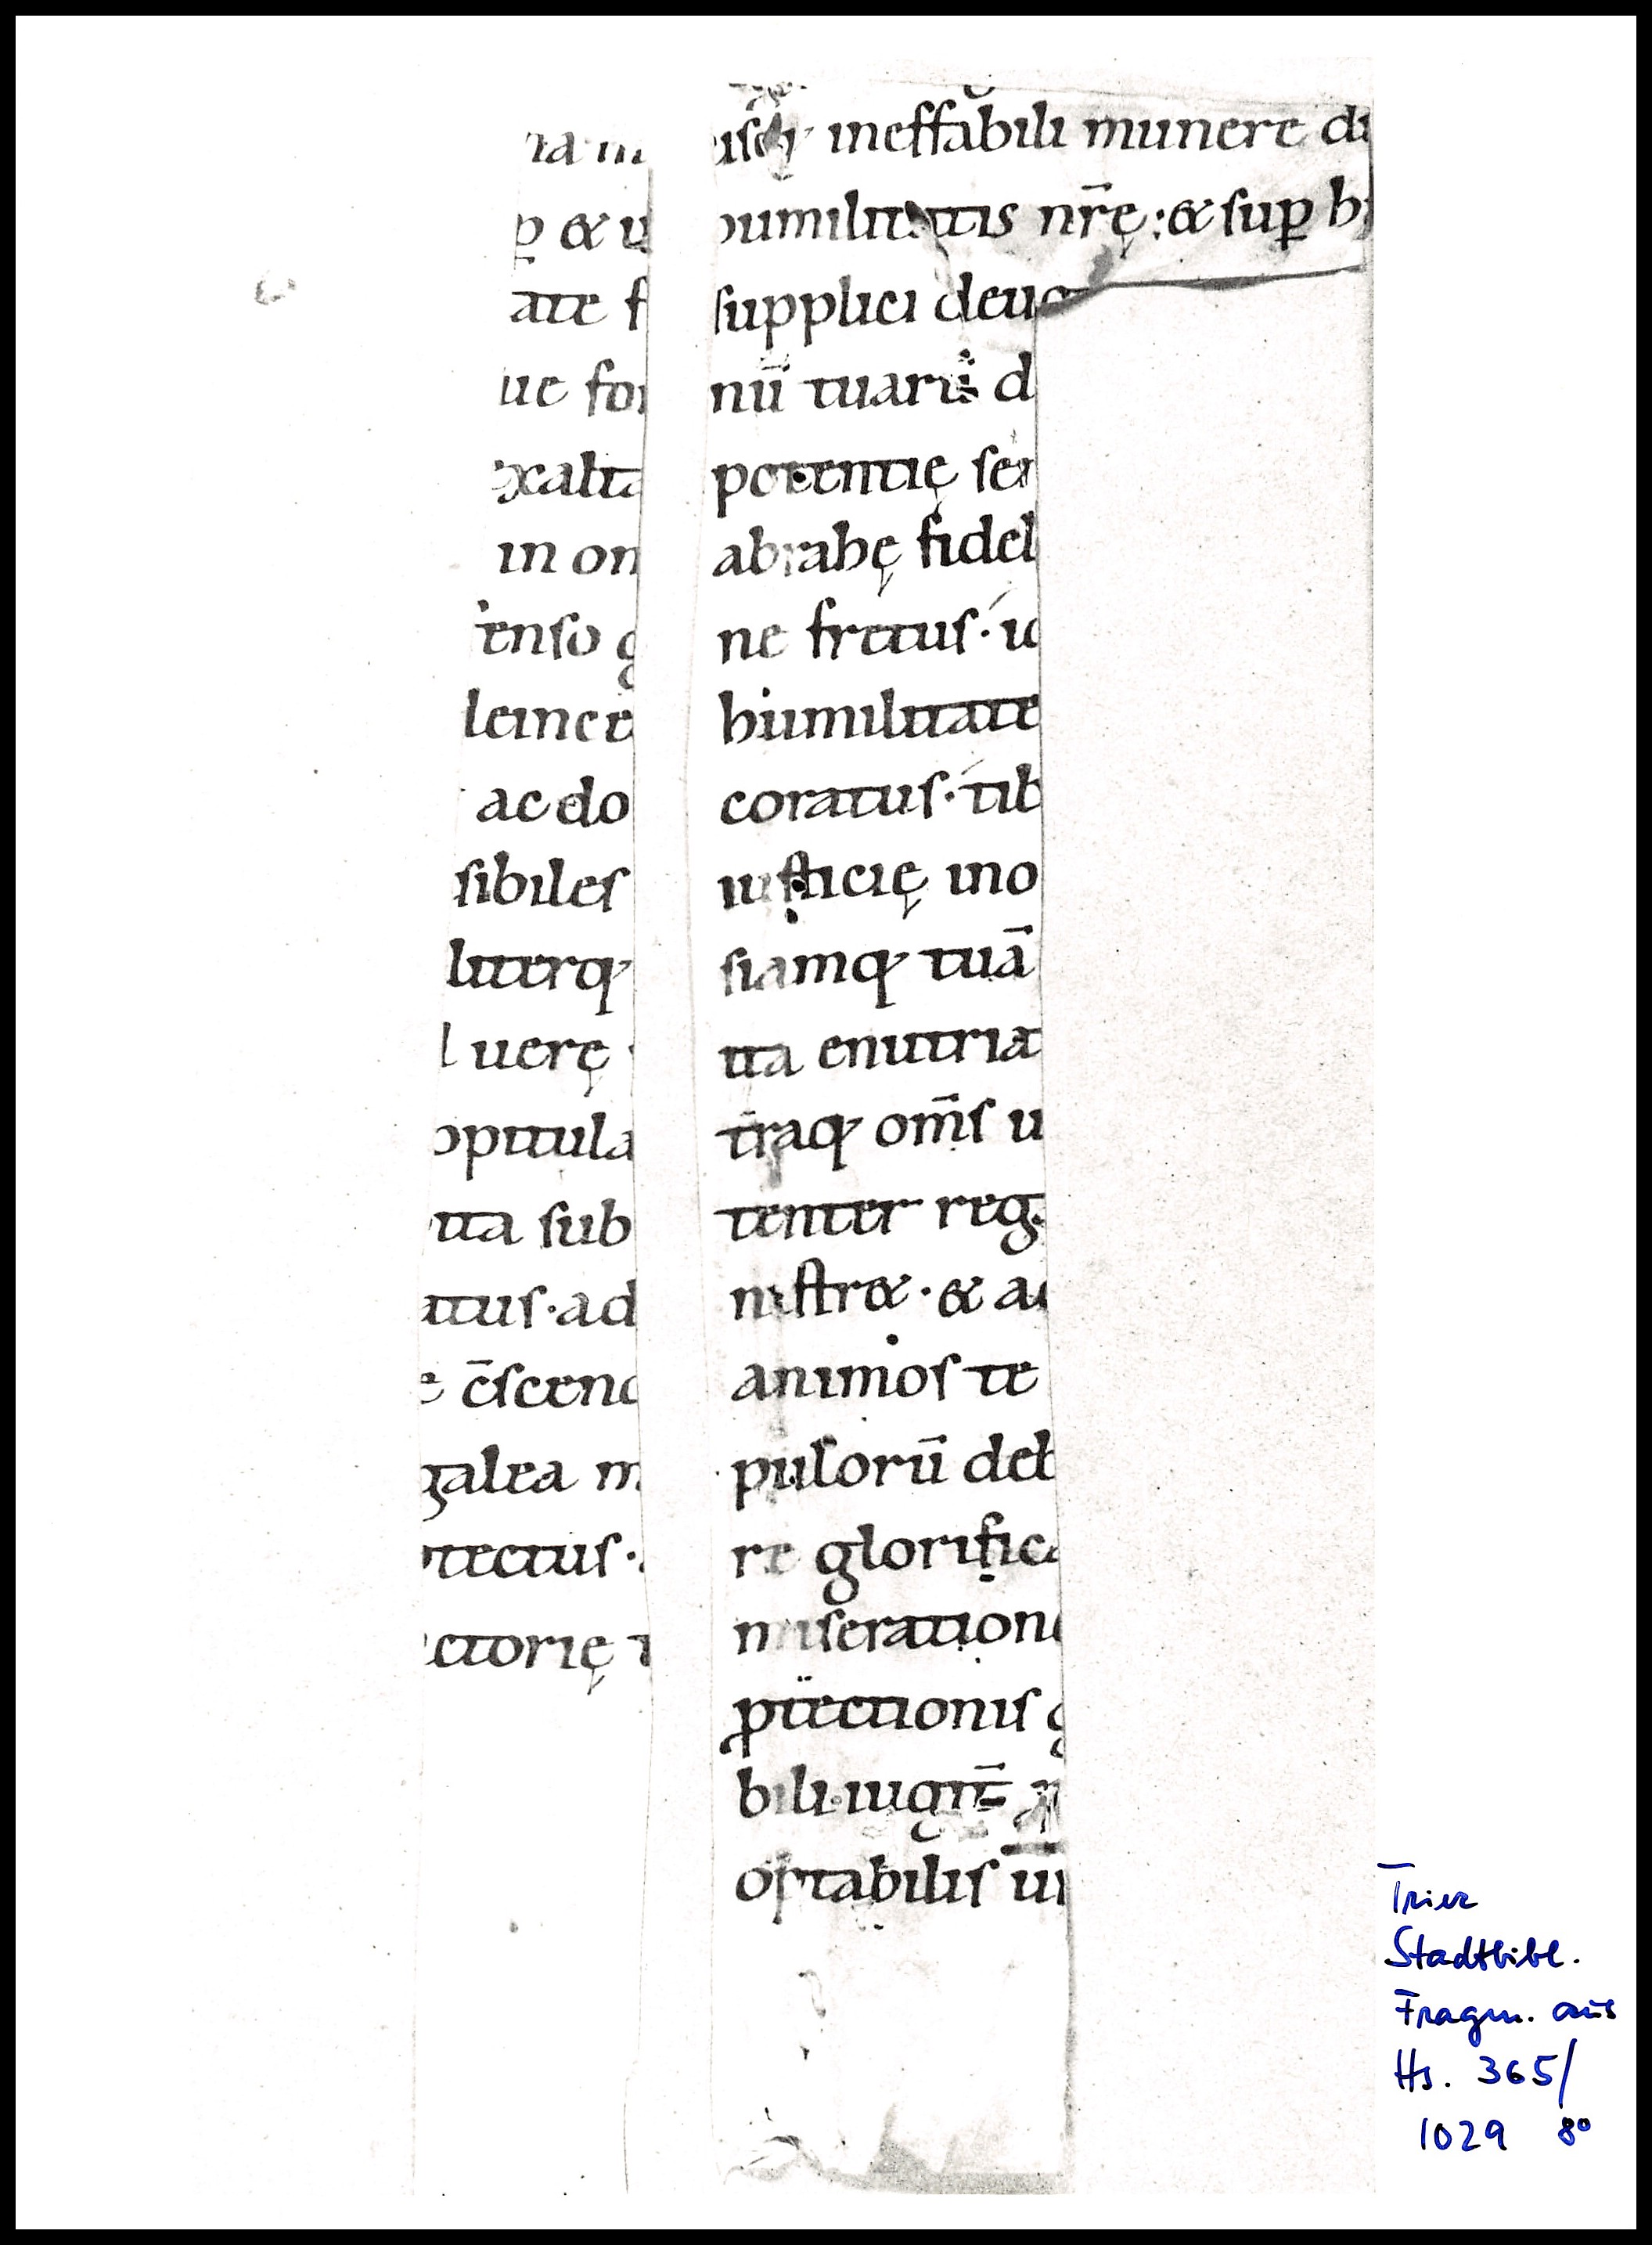 p & u
ate f
ue for
exalta
in om
tenso g
leince
ac do
sibiles
literq;
l uerę
opitula
tta sub
atus · ad
e c̄scend
galea m
otectus ·
ctorię t
ineffabili munere di
humilitatis nr̄ę : & sup h
supplici deuo
nū tuarū d
potentię ser
abrahę fidel
ne fretus · u
humilitate
coratus · tib
iusticię mo
siamq; tuā
ita enutria
traq; om̄s u
tenter reg
nistret · & ad
animos te
pulorū deb
re glorifica
miseratione
ptectionis g
bili iugit̄
optabilis
Trier
Stadtbibl.
Fragm. aus
Hs. 365/
1029 8°